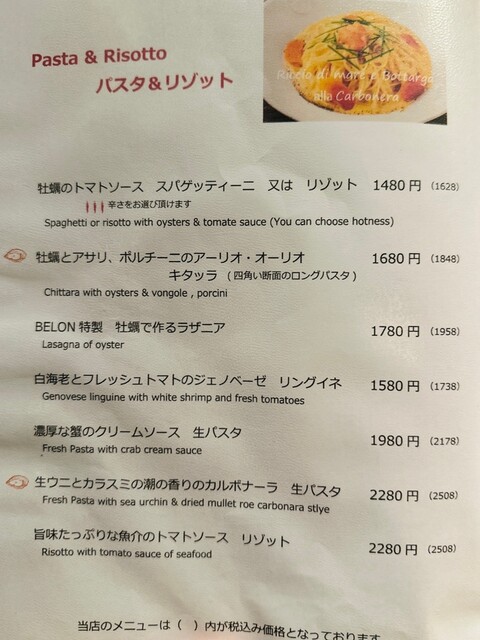 Pasta & Risotto
パスタ＆リゾット
Riccio di mare e Bottarga
alla Carbonera
牡蠣のトマトソース スパゲッティーニ 又は リゾット 1480 円 (1628)
辛さをお選び頂けます
Spaghetti or risotto with oysters & tomate sauce (You can choose hotness)
牡蠣とアサリ、ポルチーニのアーリオ・オーリオ 1680 円 (1848)
キタッラ (四角い断面のロングパスタ)
Chittara with oysters & vongole , porcini
BELON 特製 牡蠣で作るラザニア 1780 円 (1958)
Lasagna of oyster
白海老とフレッシュトマトのジェノベーゼ リングイネ 1580 円 (1738)
Genovese linguine with white shrimp and fresh tomatoes
濃厚な蟹のクリームソース 生パスタ 1980 円 (2178)
Fresh Pasta with crab cream sauce
生ウニとカラスミの潮の香りのカルボナーラ 生パスタ 2280 円 (2508)
Fresh Pasta with sea urchin & dried mullet roe carbonara stlye
旨味たっぷりな魚介のトマトソース リゾット 2280 円 (2508)
Risotto with tomato sauce of seafood
当店のメニューは（ ）内が税込み価格となっております